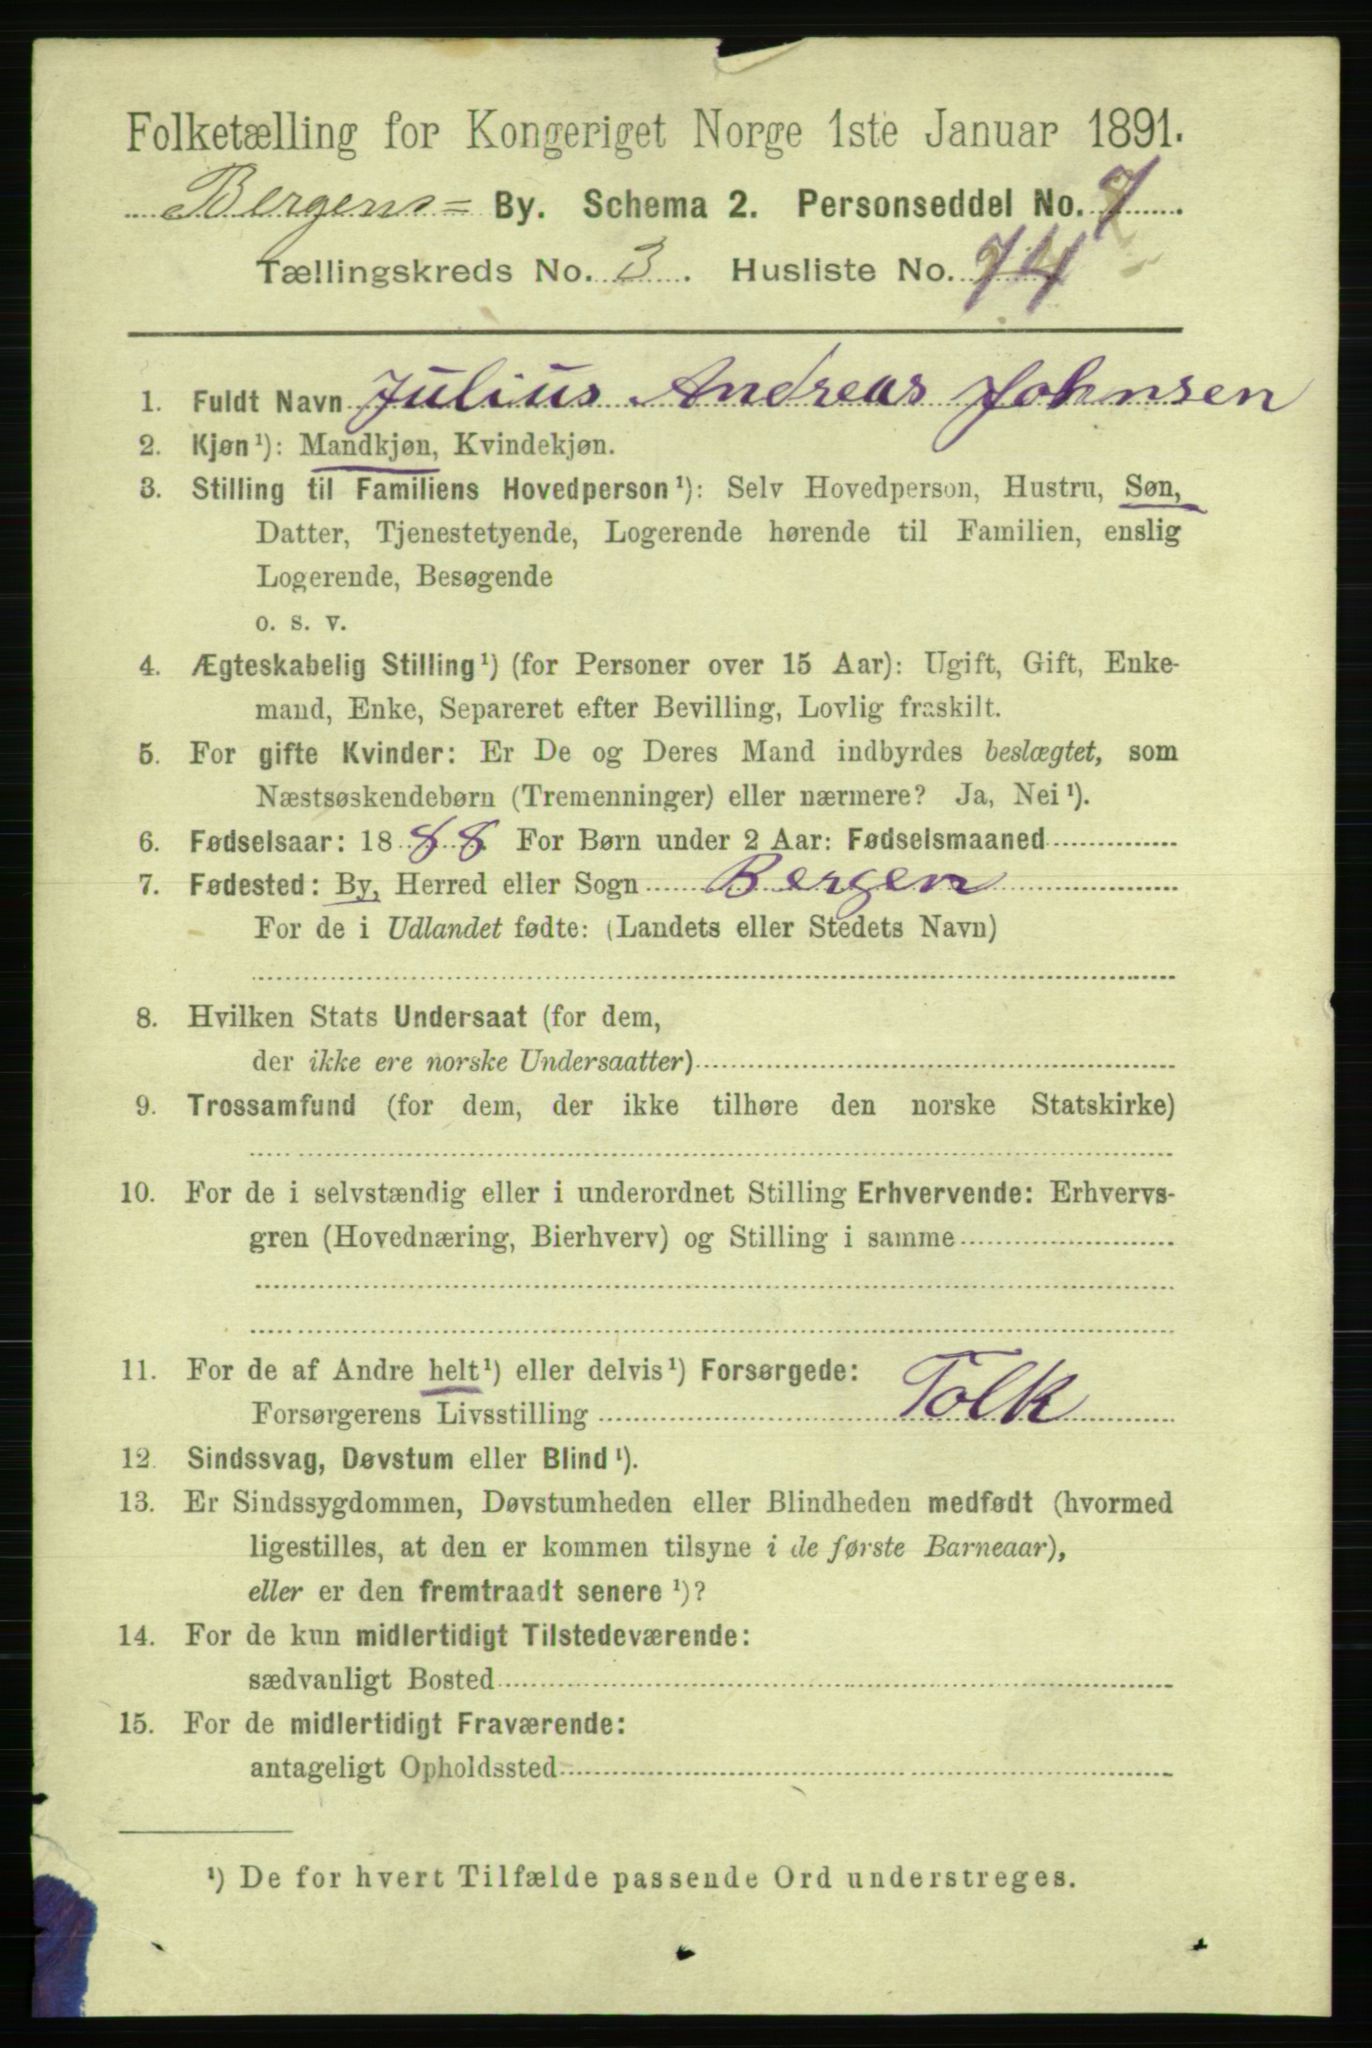 Folketælling for Kongeriget Norge 1ste Januar 1891.
Bergens= By. Schema 2. Personseddel No. 7
Tællingskreds No. 3. Husliste No. 74
1. Fuldt Navn Julius Andreas Johnsen
2. Kjøn¹): Mandkjøn, Kvindekjøn.
3. Stilling til Familiens Hovedperson¹): Selv Hovedperson, Hustru, Søn,
Datter, Tjenestetyende, Logerende hørende til Familien, enslig
Logerende, Besøgende
o. s. v.
4. Ægteskabelig Stilling¹) (for Personer over 15 Aar): Ugift, Gift, Enke-
mand, Enke, Separeret efter Bevilling, Lovlig fraskilt.
5. For gifte Kvinder: Er De og Deres Mand indbyrdes beslægtet, som
Næstsøskendebørn (Tremenninger) eller nærmere? Ja, Nei¹).
6. Fødselsaar: 1888 For Børn under 2 Aar: Fødselsmaaned
7. Fødested: By, Herred eller Sogn Bergen
For de i Udlandet fødte: (Landets eller Stedets Navn)
8. Hvilken Stats Undersaat (for dem,
der ikke ere norske Undersaatter)
9. Trossamfund (for dem, der ikke tilhøre den norske Statskirke)
10. For de i selvstændig eller i underordnet Stilling Erhvervende: Erhvervs-
gren (Hovednæring, Bierhverv) og Stilling i samme
11. For de af Andre helt¹) eller delvis¹) Forsørgede:
Forsørgerens Livsstilling Tolk
12. Sindssvag, Døvstum eller Blind¹).
13. Er Sindssygdommen, Døvstumheden eller Blindheden medfødt (hvormed
ligestilles, at den er kommen tilsyne i de første Barneaar),
eller er den fremtraadt senere¹)?
14. For de kun midlertidigt Tilstedeværende:
sædvanligt Bosted
15. For de midlertidigt Fraværende:
antageligt Opholdssted
¹) De for hvert Tilfælde passende Ord understreges.